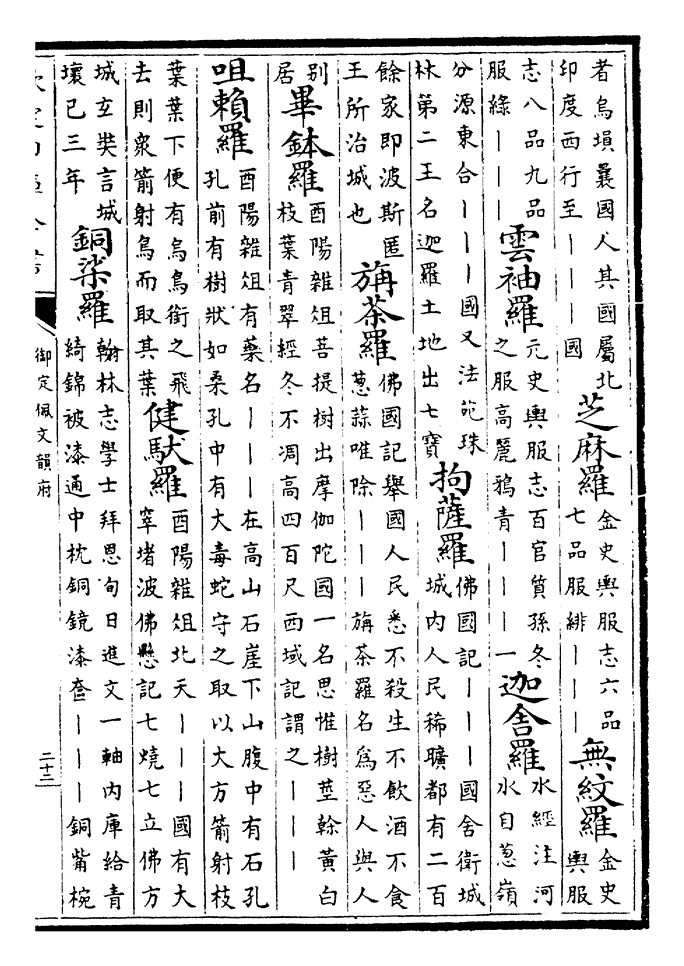 者烏塤曩國人其國屬北
印度西行至｜｜｜國
芝麻羅
金史輿服志六品
七品服緋｜｜｜
無紋羅
金史
輿服
志八品九品
服綠｜｜｜
雲袖羅
元史輿服志百官質孫冬
之服高麗鴉青｜｜｜一
迦舍羅
水經注河
水自蔥嶺
分源東合｜｜｜國又法苑珠
林第二王名迦羅土地出七寶
拘薩羅
佛國記｜｜｜國舍衛城
城內人民稀曠都有二百
餘家即波斯匿
王所治城也
旃荼羅
佛國記舉國人民悉不殺生不飲酒不食
蔥蒜唯除｜｜｜旃荼羅名爲惡人與人
别
居
畢鉢羅
酉陽雜俎菩提樹出摩伽陀國一名思惟樹莖榦黃白
枝葉青翠經冬不凋高四百尺西域記謂之｜｜｜
咀賴羅
酉陽雜俎有藥名｜｜｜在高山石崖下山腹中有石孔
孔前有樹狀如桑孔中有大毒蛇守之取以大方箭射枝
葉葉下便有烏鳥銜之飛
去則衆箭射鳥而取其葉
健馱羅
酉陽雜俎北天｜｜｜國有大
窣堵波佛懸記七燒七立佛方
城玄奘言城
壞已三年
銅柒羅
翰林志學士拜恩旬日進文一軸內庫給青
綺錦被漆通中枕銅鏡漆奩｜｜｜銅觜椀
御定佩文韻府
二十三